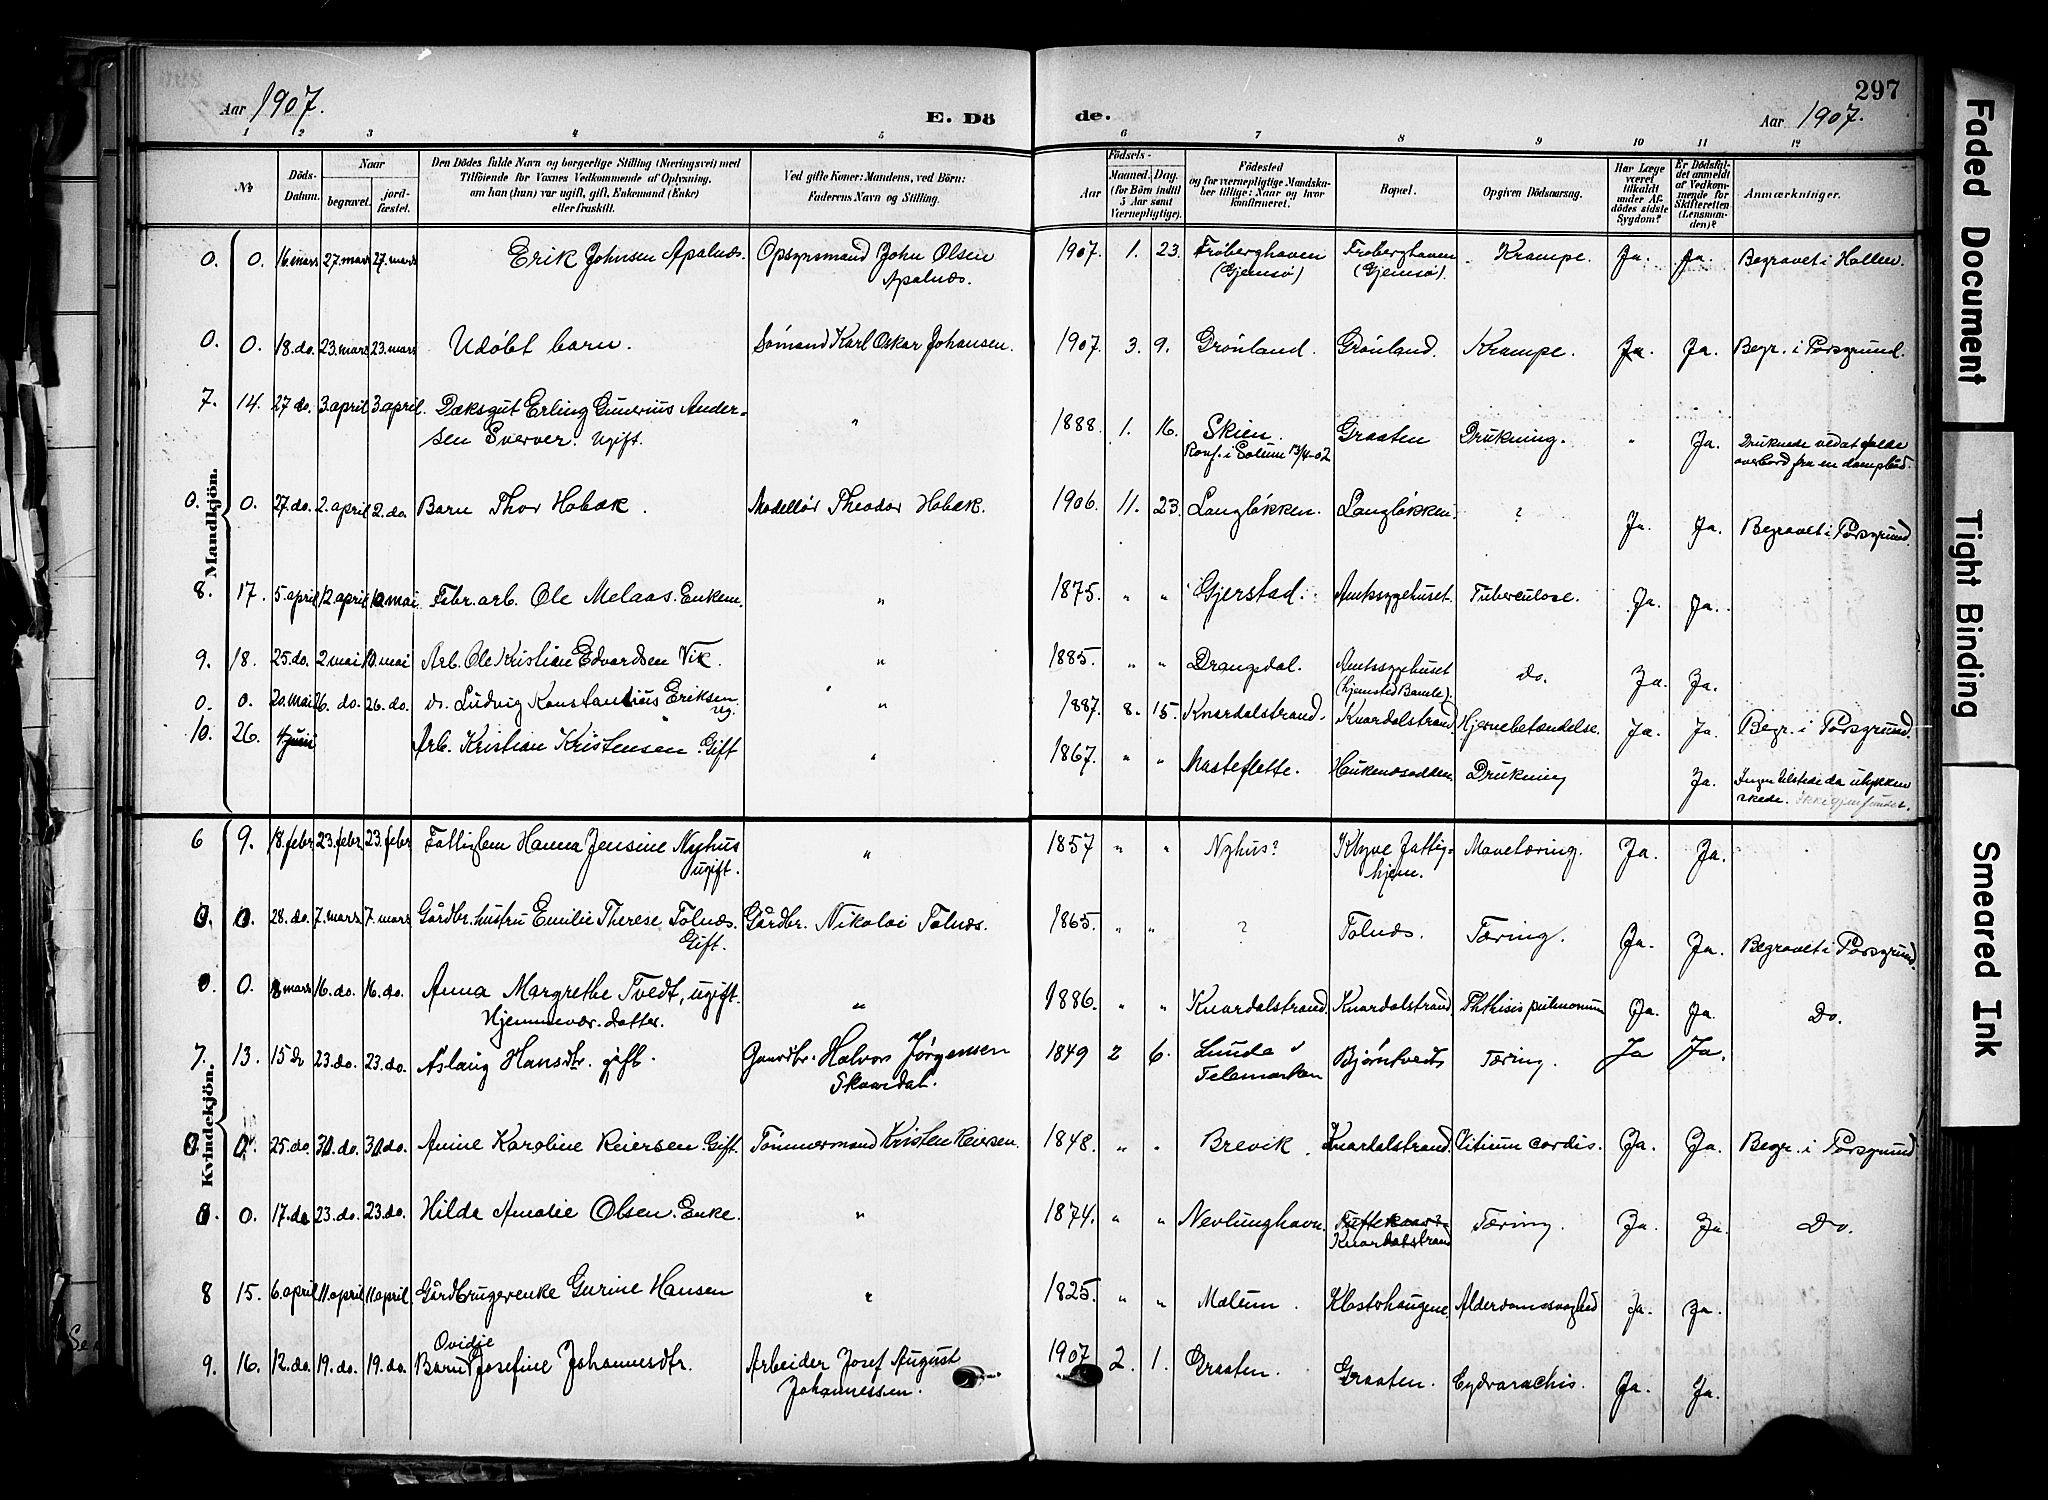 297
Aar 1907.
E. Dö
de.
Aar 1907.
1 2 3 4 5 6 7 8 9 10 11 12
No
Döds-
Datum.
Naar
begravet.
jord-
fæstet.
Den Dödes fulde Navn og borgerlige Stilling (Næringsvei) med
Tilföiende for Voxnes Vedkommende af Oplysning,
om han (hun) var ugift, gift, Enkemand (Enke)
eller fraskilt.
Ved gifte Koner: Mandens, ved Börn:
Faderens Navn og Stilling.
Födsels-
Aar
Maaned. Dag.
(for Börn indtil
5 Aar samt
Værnepligtige).
Födested
og for værnepligtige Mandska-
ber tillige: Naar og hvor
konfirmeret.
Bopæl.
Opgiven Dödsaarsag.
Har Læge
været
tilkaldt
under Af-
dödes sidste
Sygdom?
Er Dödsfal-
det anmeldt
af Vedkom-
mende for
Skifteretten
(Lensman-
den)?
Anmærkninger.
Mandkjön.
0. 0. 16. mars 27. mars 27. mars Erik Johnsen Apalnæs. Opsynsmand John Olsen 1907. 1. 23. Frøberghaven Frøberghaven Krampe. Ja. Ja. Begravet i Hollen.
Apalnæs. (Gjemsø) (Gjemsø).
0. 0. 18. do. 23. mars 23. mars Udøbt barn. Sømand Karl Oskar Johansen. 1907. 3. 9. Grønland. Grønland. Krampe. Ja. Ja. Begr. i Porsgrund.
7. 14. 27 do. 3. april 3. april. Dæksgut Erling Gunerius Ander-
sen Sverver. Ugift. " 1888. 1. 16. Skien. Graaten Drukning. " Ja. Druknede ved at falde
Konf. i Solum 13/4-02 overbord fra en dampbåd.
0. 0. 27. do. 2. april 2. do. Barn Thor Hobæk. Modellør Theodor Hobæk. 1906. 11. 23. Langløkken. Langløkken. ? Ja. Ja. Begravet i Porsgrund.
8. 17. 5. april 12. april 10. mai Fabr. arb. Ole Melaas. Enkem. " 1875. " " Gjerstad. Amtssygehuset. Tuberculose. Ja. Ja.
9. 18. 25. do. 2. mai 10. mai Arb. Ole Kristian Edvardsen Vik. " 1885. " " Drangedal. Amtssygehuset Do. Ja. Ja.
(hjemsted Bamle).
0. 0. 20. mai 26. do. 26. do. do. Ludvig Konstantius Eriksen " 1887. 8. 15. Knardalstrand. Knardalstrand Hjernebetændelse. Ja. Ja. Begr. i Porsgrund.
ug.
10. 26. 4. juni Arb. Kristian Kristensen. Gift " 1867. " " Masteflette. Haukenesodden. Drukning Ja. Ingen tilstede da ulykken
skede. Ikke gjenfundet.
Kvindekjön.
6 9. 18. febr. 23. febr. 23. febr Fattiglem Hanna Jensine Nyhus " 1857 " " Nyhus? Klyve Fattig- Mavetæring. Ja. Ja.
ugift. hjem.
0. 0. 28. do. 7. mars 7. mars Gårdbr. hustru Emilie Therese Tolnæs. Gårdbr. Nikolai Tolnæs. 1865. " " ? Tolnæs. Tæring. Ja. Ja. Begravet i Porsgrund.
Gift.
0. 0. 8 mars 16. do. 16. do. Anna Margrethe Tvedt, ugift. " 1886. " " Knardalstrand. Knardalstrand. Phthisis pulmonum Ja. Ja. Do.
Hjemmevær. datter.
7. 13. 15 do 23. do. 23. do. Aslaug Hansdtr. gift. Gaardbr. Halvor Jørgensen 1849 2 6. Lunde i Bjørntvedt Tæring. Ja Ja.
Skaardal. Telemarken
0. 0. 25. do. 30. do. 30. do. Anne Karoline Reiersen Gift. Tømmermand Kristen Reiersen. 1848. " " Brevik. Knardalstrand. Vitium cordis. Ja. Ja. Begr. i Porsgrund
0. 0. 17. do 23. do. 23. do. Hilda Amalie Olsen. Enke. " 1874. " " Nevlunghavn. Tuftekaas? Tæring. Ja. Ja. Do.
Knardalstrand
8 15. 6. april 11. april 11. april. Gårdbrugerenke Gurine Hansen " 1825. " " Melum. Klosterhaugene. Alderdomssvaghed Ja. Ja.
Ovidie
9. 16. 12. do. 19. do. 19. do. Barn Josefine Johannesdtr. Arbeider Josef August 1907 2. 1. Graaten. Graaten. Hydrorachis. Ja. Ja.
Johannessen.
Faded Document
Tight Binding
Smeared Ink